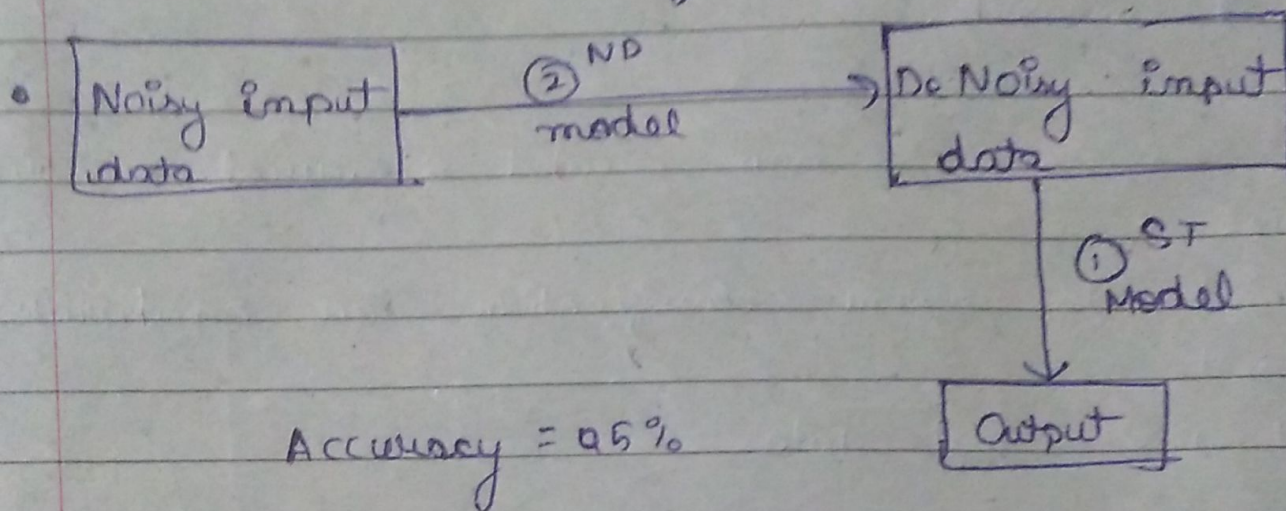 Noisy input
data
② ND
model
De Noisy input
data
① ST
Model
Output
Accuracy = 95%